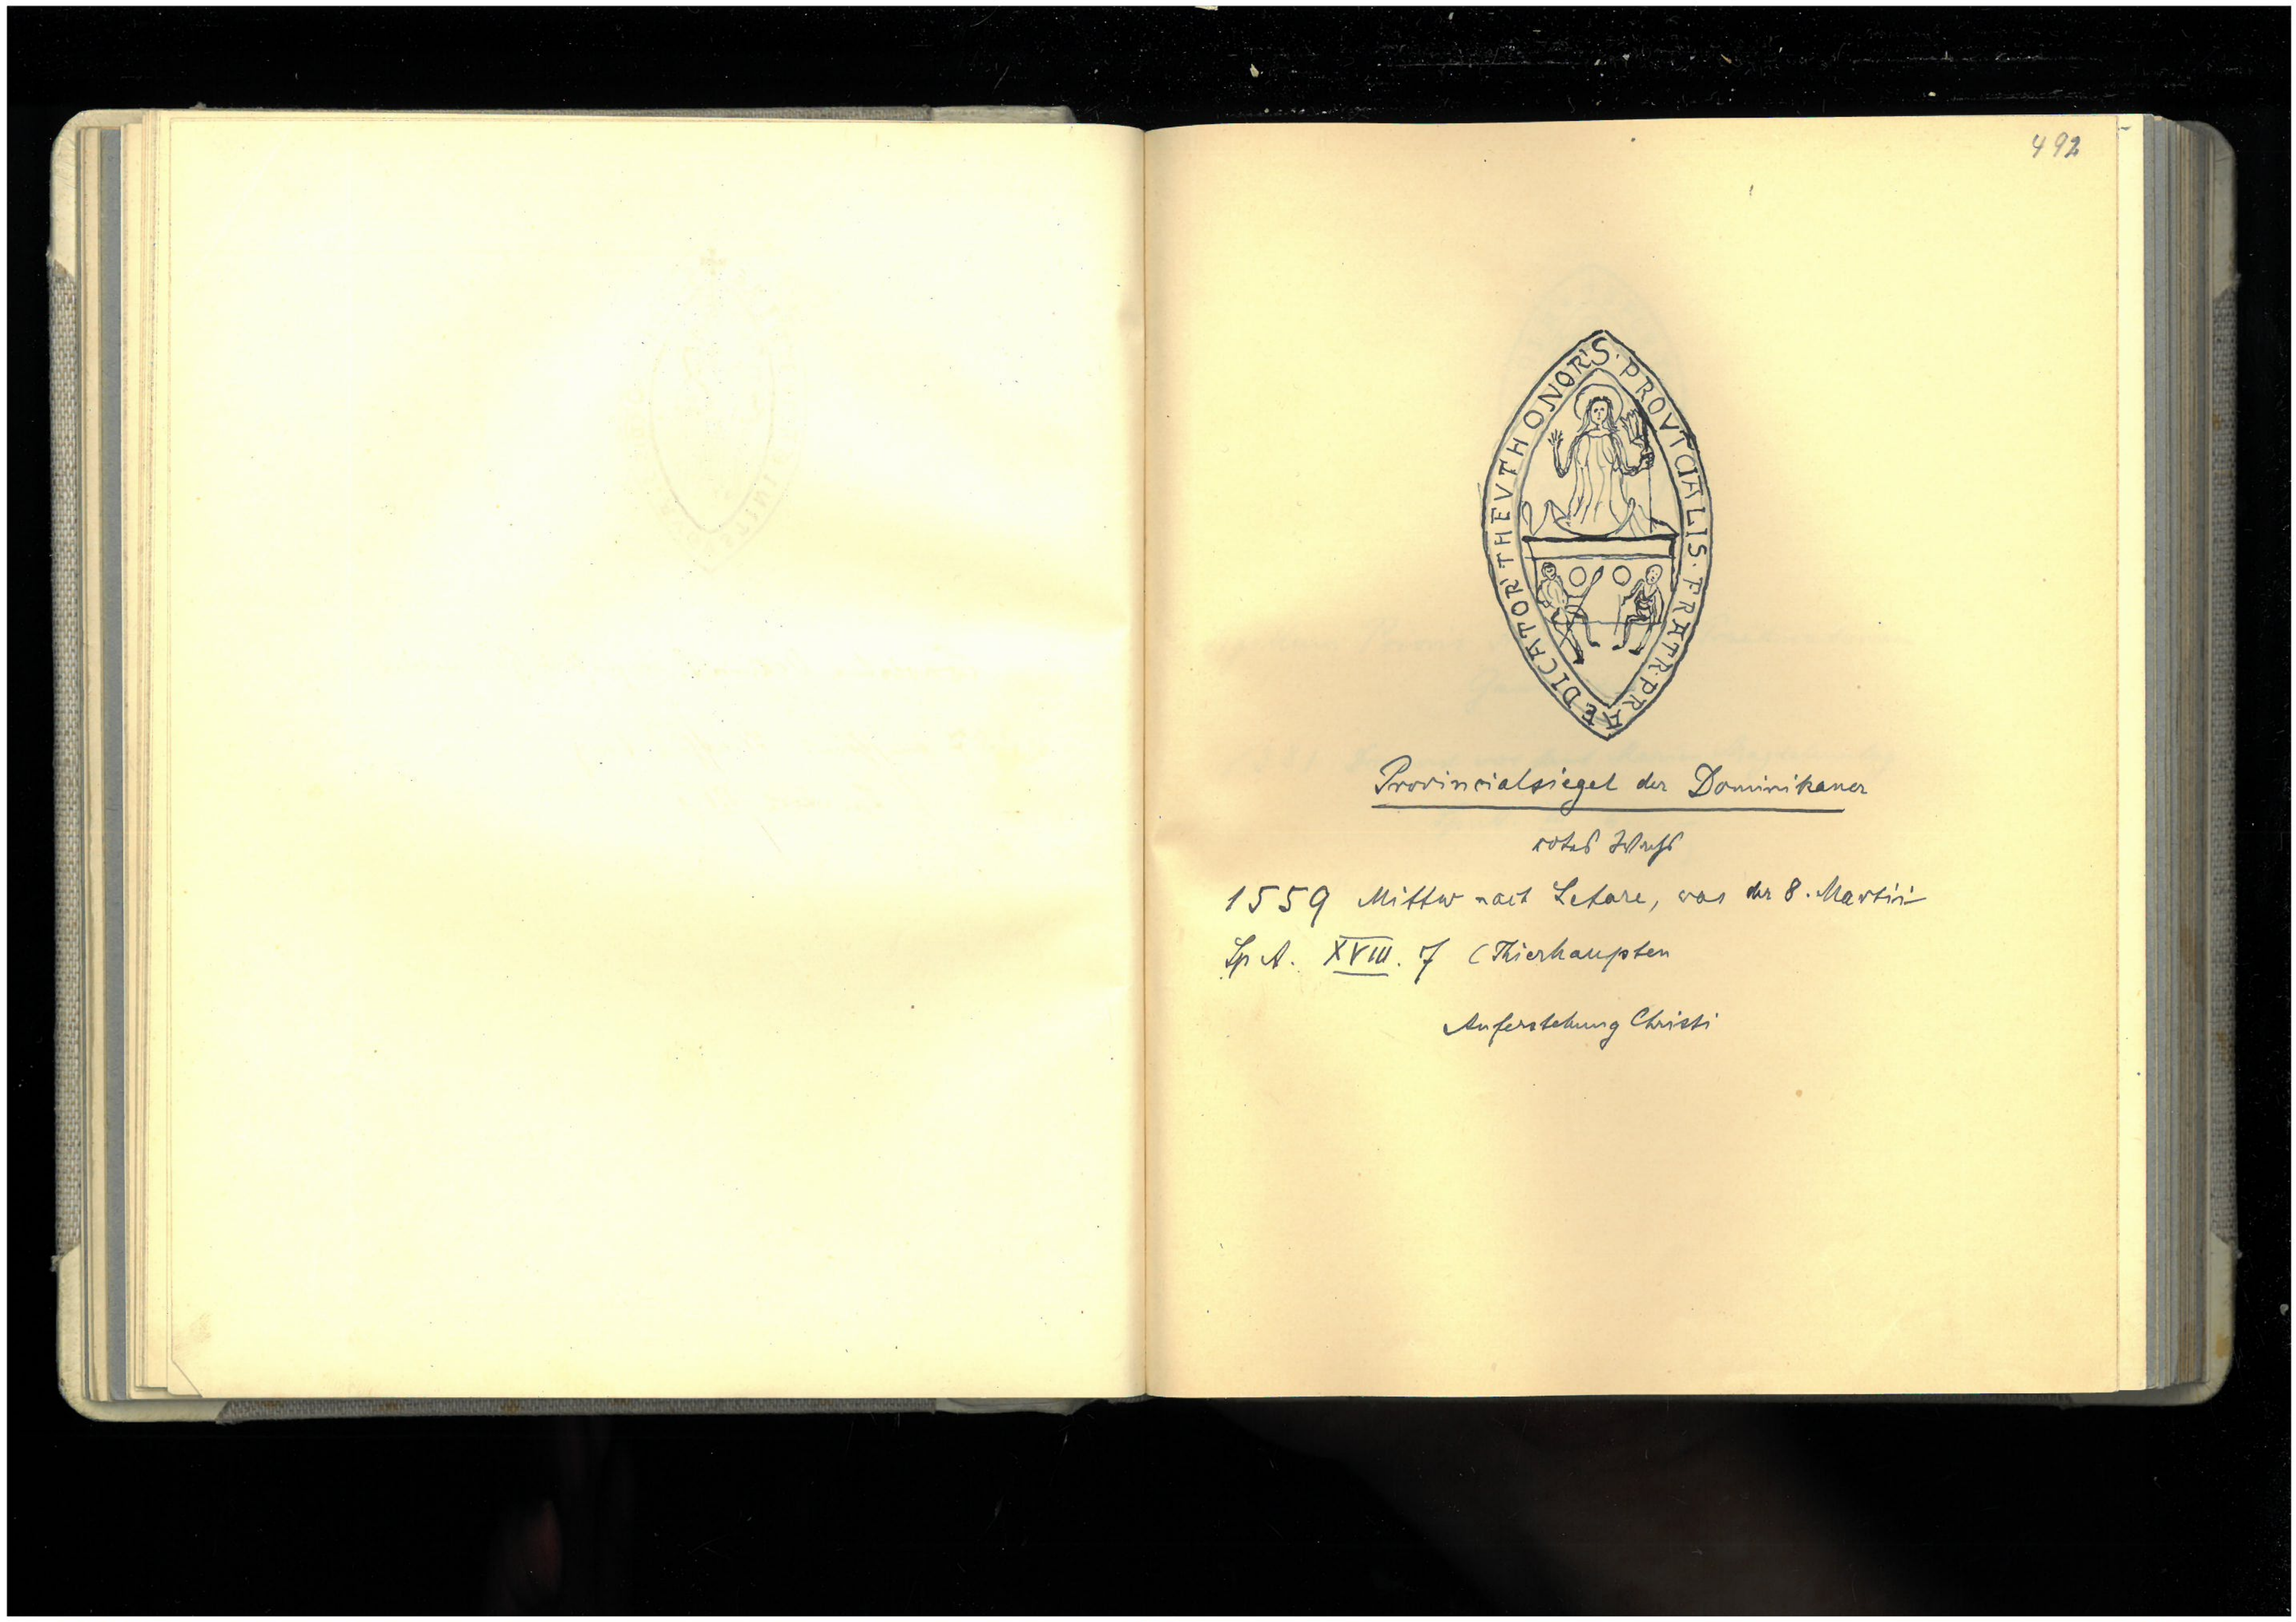 492
S. PROVTCIALIS. FRATR. PRAEDICATOR' THEVTHONOR'
Provincialsiegel der Dominikaner
rotes Wachs
1559 Mittw nach Letare, was der 8. Martii
Sp A. XVIII. 7 (Thierhaupten
Auferstehung Christi